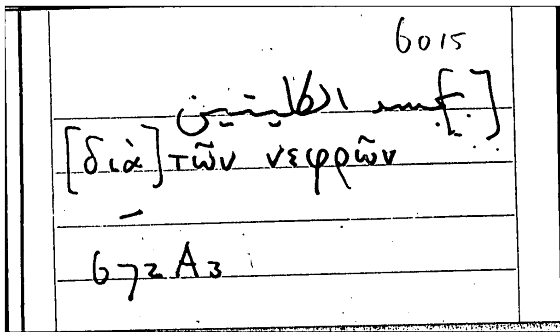 6015
الكليتين
[διὰ] τῶν νεφρῶν
672 A3